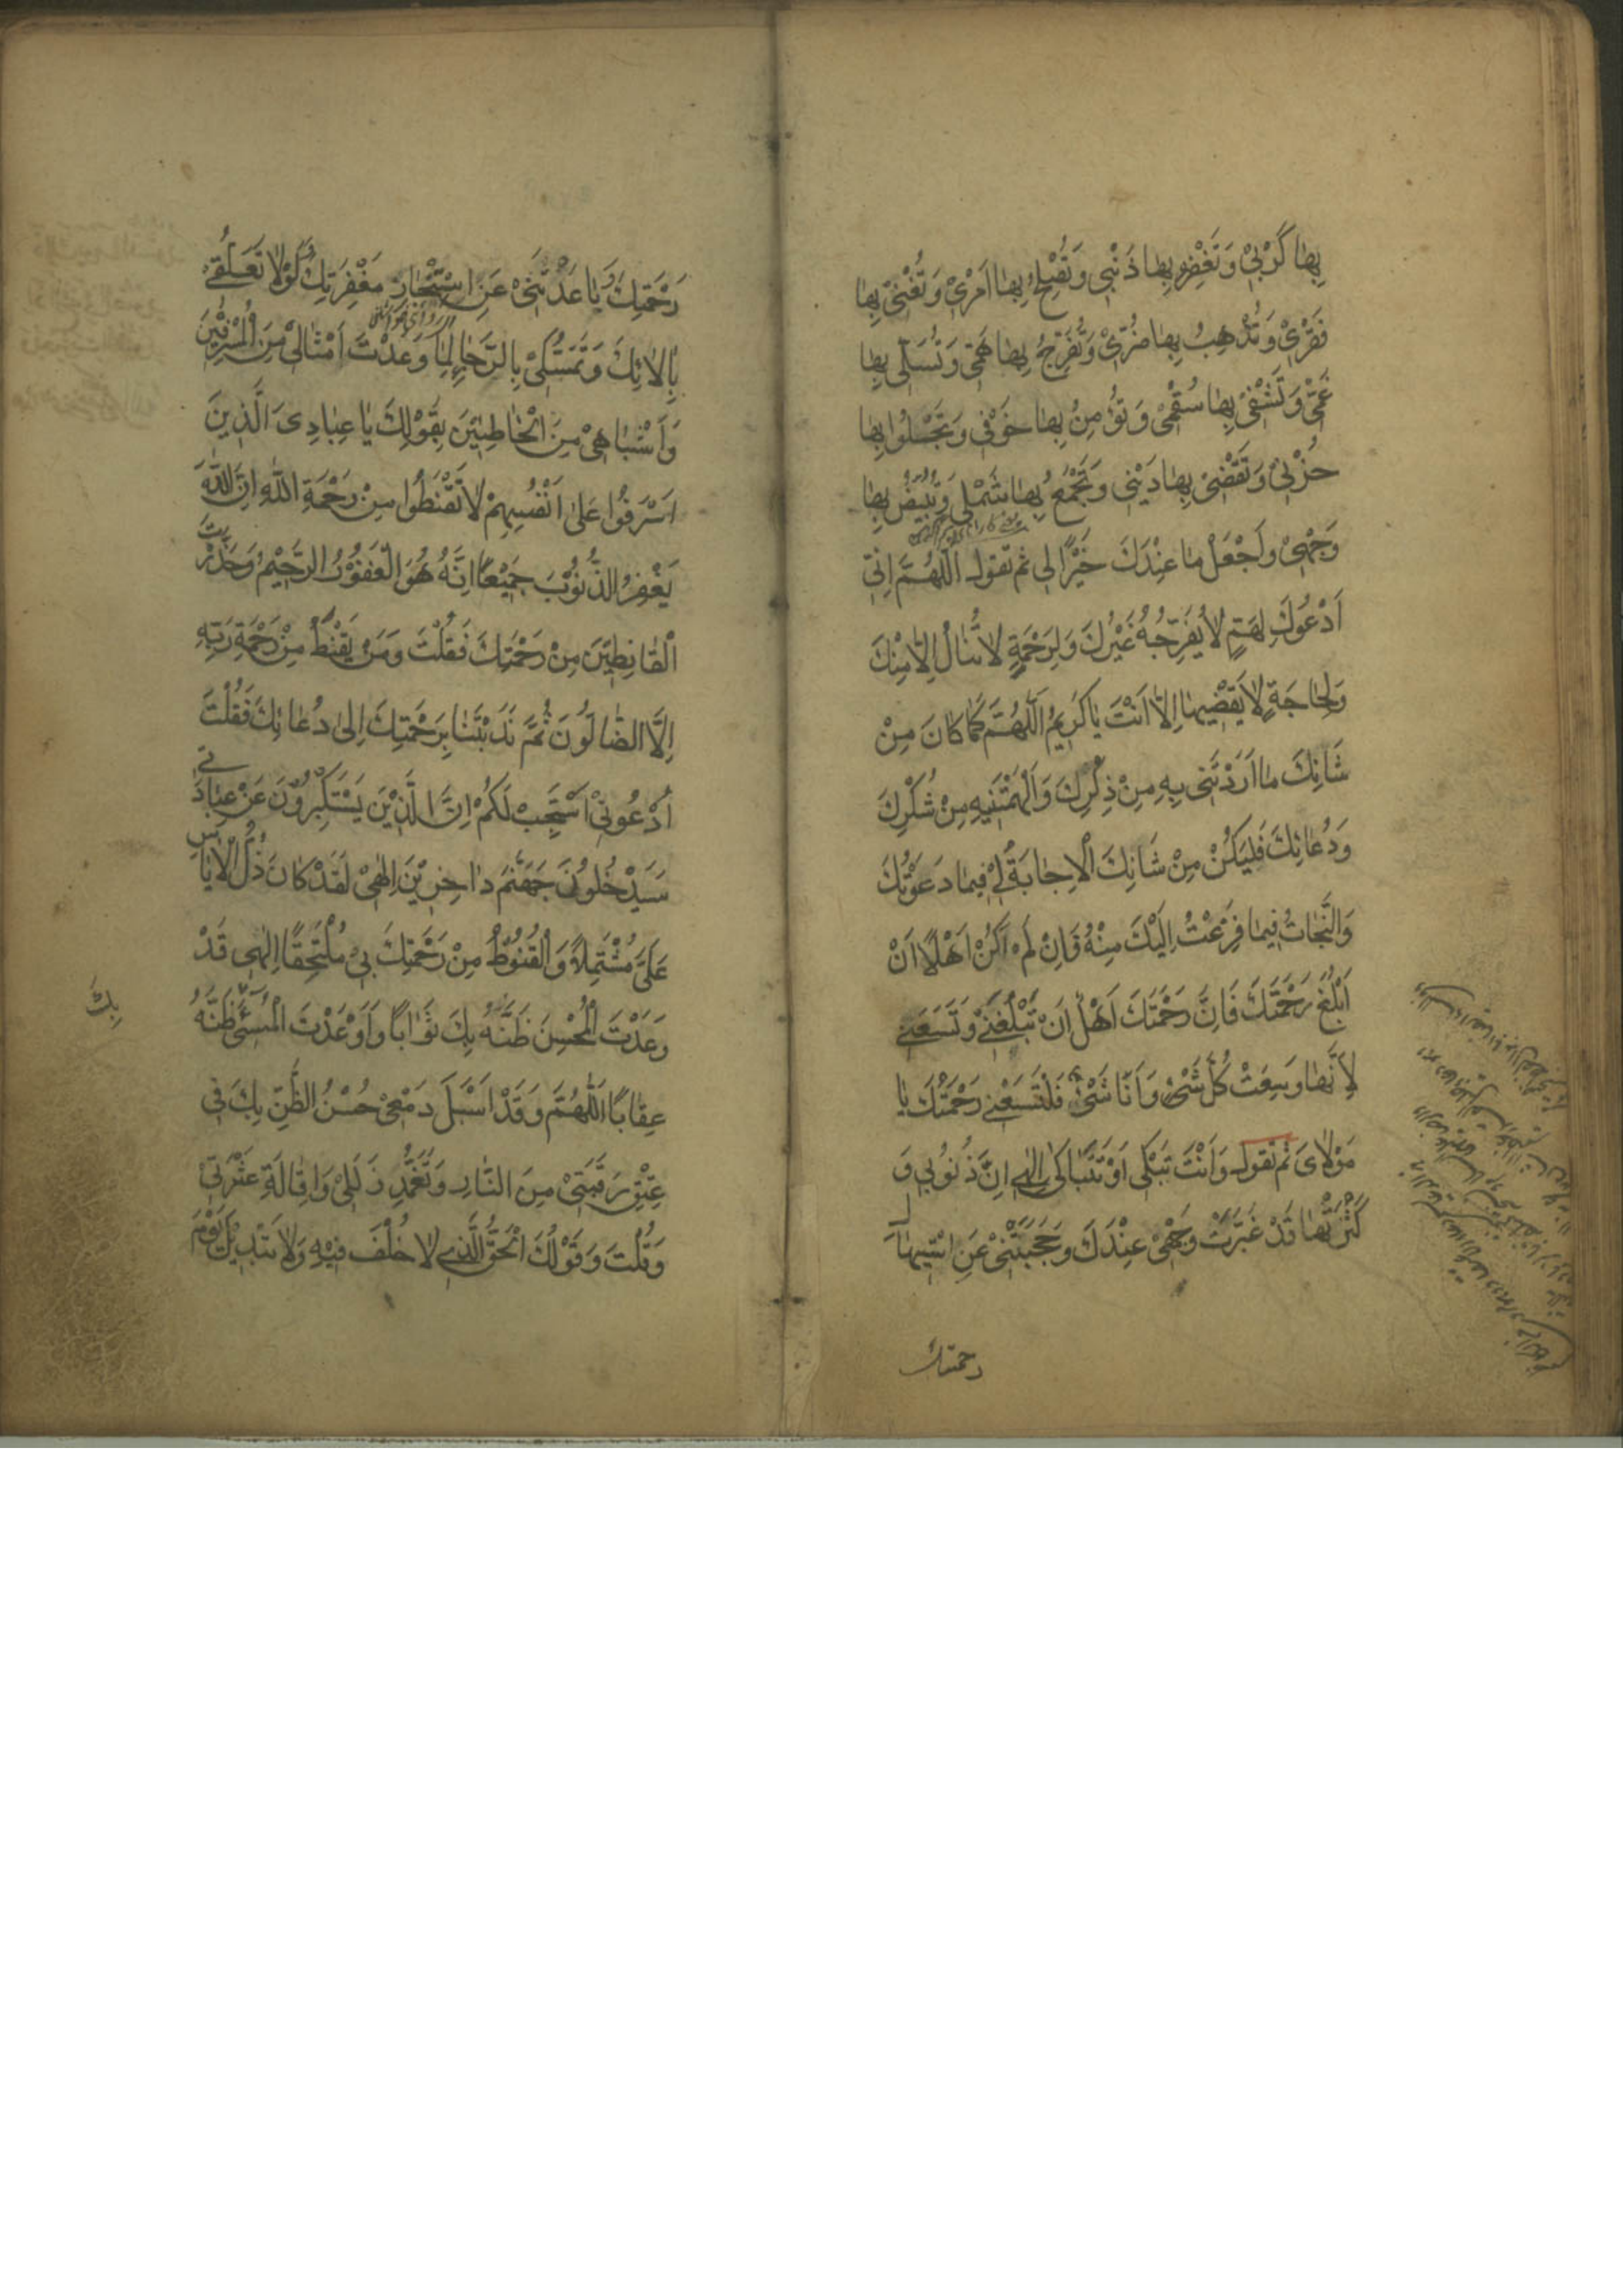 بِهَا كَرْبِي وَتَغْفِرُ بِهَا ذَنْبِي وَتُفْلِحُ بِهَا اَمْرِي وَتُغْنِي بِهَا
فَقْرِي وَتُذْهِبُ بِهَا ضُرِّي وَتُفَرِّجُ بِهَا هَمِّي وَتُسَلِّي بِهَا
غَمِّي وَتَشْفِي بِهَا سُقْمِي وَتُؤْمِنُ بِهَا خَوْفِي وَتَجْلُوا بِهَا
حُزْنِي وَتَقْضِي بِهَا دَيْنِي وَتَجْمَعُ بِهَا شَمْلِي وَتُبَيِّضُ بِهَا
وَجْهِي وَاجْعَلْ مَا عِنْدَكَ خَيْرًا لِي ثم تقول اَللّٰهُمَّ اِنِّي
اَدْعُوكَ لِهَمٍّ لَا يُفَرِّجُهُ غَيْرُكَ وَلِرَحْمَةٍ لَا تُنَالُ اِلَّا مِنْكَ
وَلِحَاجَةٍ لَا يَقْضِيهَا اِلَّا اَنْتَ يَا كَرِيمُ اَللّٰهُمَّ كَمَا كَانَ مِنْ
شَانِكَ مَا اَرَدْتَنِي بِهِ مِنْ ذِكْرِكَ وَاَلْهَمْتَنِيهِ مِنْ شُكْرِكَ
وَدُعَائِكَ فَلْيَكُنْ مِنْ شَانِكَ الْاِجَابَةُ لِي فِيمَا دَعَوْتُكَ
وَالنَّجَاتُ فِيمَا فَزِعْتُ اِلَيْكَ مِنْهُ فَاِنْ لَمْ اَكُنْ اَهْلًا اَنْ
اَبْلُغَ رَحْمَتَكَ فَاِنَّ رَحْمَتَكَ اَهْلٌ اَنْ تَبْلُغَنِي وَتَسَعَنِي
لِاَنَّهَا وَسِعَتْ كُلَّ شَيْءٍ وَاَنَا شَيْءٌ فَلْتَسَعْنِي رَحْمَتُكَ يَا
مَوْلَايَ ثم تقول وَاَنْتَ تَبْكِي اَوْ تَتَبَاكَى اِلٰهِي اِنَّ ذُنُوبِي وَ
كَثْرَتَهَا قَدْ غَبَّرَتْ وَجْهِي عِنْدَكَ وَحَجَبَتْنِي عَنِ اسْتِيهَالِ
رحمتك
رَحْمَتِكَ وَبَاعَدَتْنِي عَنِ اسْتِنْجَازِ مَغْفِرَتِكَ وَلَوْلَا تَعَلُّقِي
بِاٰلَائِكَ وَتَمَسُّكِي بِالرَّجَاءِ لِمَا وَعَدْتَ اَمْثَالِي مِنَ الْمُسْرِفِينَ
وَاَشْبَاهِي مِنَ الْخَاطِئِينَ بِقَوْلِكَ يَا عِبَادِيَ الَّذِينَ
اَسْرَفُوا عَلَى اَنْفُسِهِمْ لَا تَقْنَطُوا مِنْ رَحْمَةِ اللّٰهِ اِنَّ اللّٰهَ
يَغْفِرُ الذُّنُوبَ جَمِيعًا اِنَّهُ هُوَ الْغَفُورُ الرَّحِيمُ وَحَذَّرْتَ
الْقَانِطِينَ مِنْ رَحْمَتِكَ فَقُلْتَ وَمَنْ يَقْنَطُ مِنْ رَحْمَةِ رَبِّهِ
اِلَّا الضَّالُّونَ ثُمَّ نَدَبْتَنَا بِرَحْمَتِكَ اِلَى دُعَائِكَ فَقُلْتَ
اُدْعُونِي اَسْتَجِبْ لَكُمْ اِنَّ الَّذِينَ يَسْتَكْبِرُونَ عَنْ عِبَادَتِي
سَيَدْخُلُونَ جَهَنَّمَ دَاخِرِينَ اِلٰهِي لَقَدْ كَانَ ذُلُّ الْاِيَاسِ
عَلَيَّ مُشْتَمِلًا وَالْقُنُوطُ مِنْ رَحْمَتِكَ بِي مُلْتَحِقًا اِلٰهِي قَدْ
وَعَدْتَ الْمُحْسِنَ ظَنَّهُ بِكَ ثَوَابًا وَاَوْعَدْتَ الْمُسِيءَ ظَنَّهُ
بِكَ
عِقَابًا اَللّٰهُمَّ وَقَدْ اَسْبَلَ دَمْعِي حُسْنُ الظَّنِّ بِكَ فِي
عِتْقِ رَقَبَتِي مِنَ النَّارِ وَتَغَمُّدِ زَلَلِي وَاِقَالَةِ عَثْرَتِي
وَقُلْتَ وَقَوْلُكَ الْحَقُّ الَّذِي لَا خُلْفَ فِيهِ وَلَا تَبْدِيلَ يَوْمَ